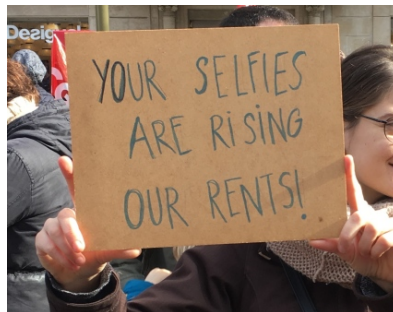 Desig
YOUR SELFIES
ARE RiSiNG
OUR RENTS!